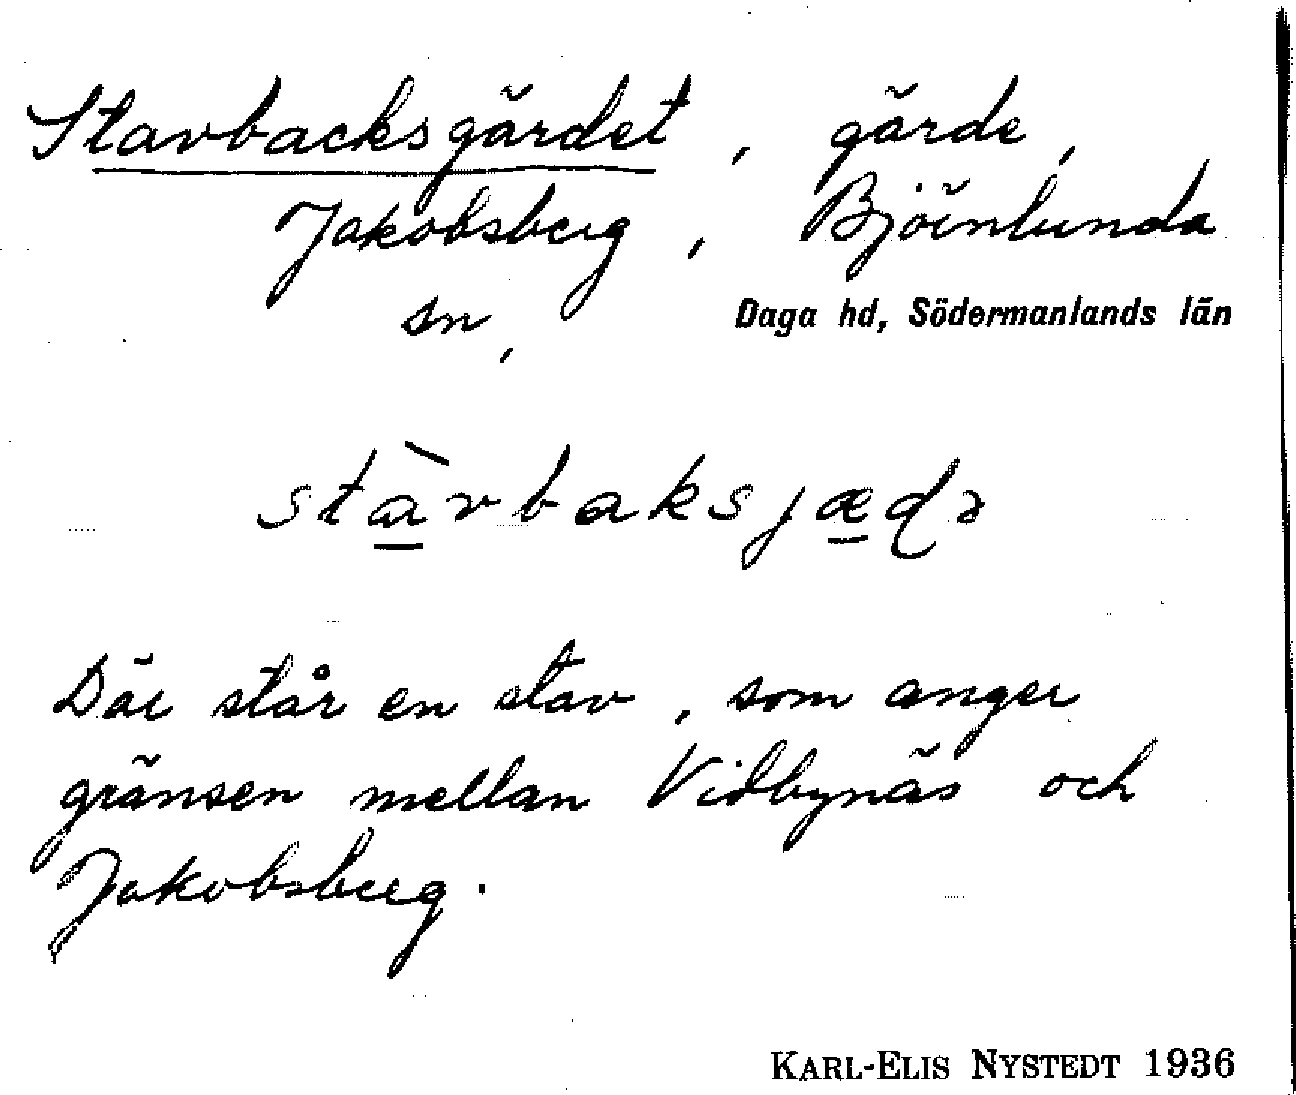 Stavbacksgärdet, gärde,
Jakobsberg, Björnlunda
sn,
Daga hd, Södermanlands län
stàvbaksjæḍə
Där står en stav, som anger
gränsen mellan Vidbynäs och
Jakobsberg.
KARL-ELIS NYSTEDT 1936